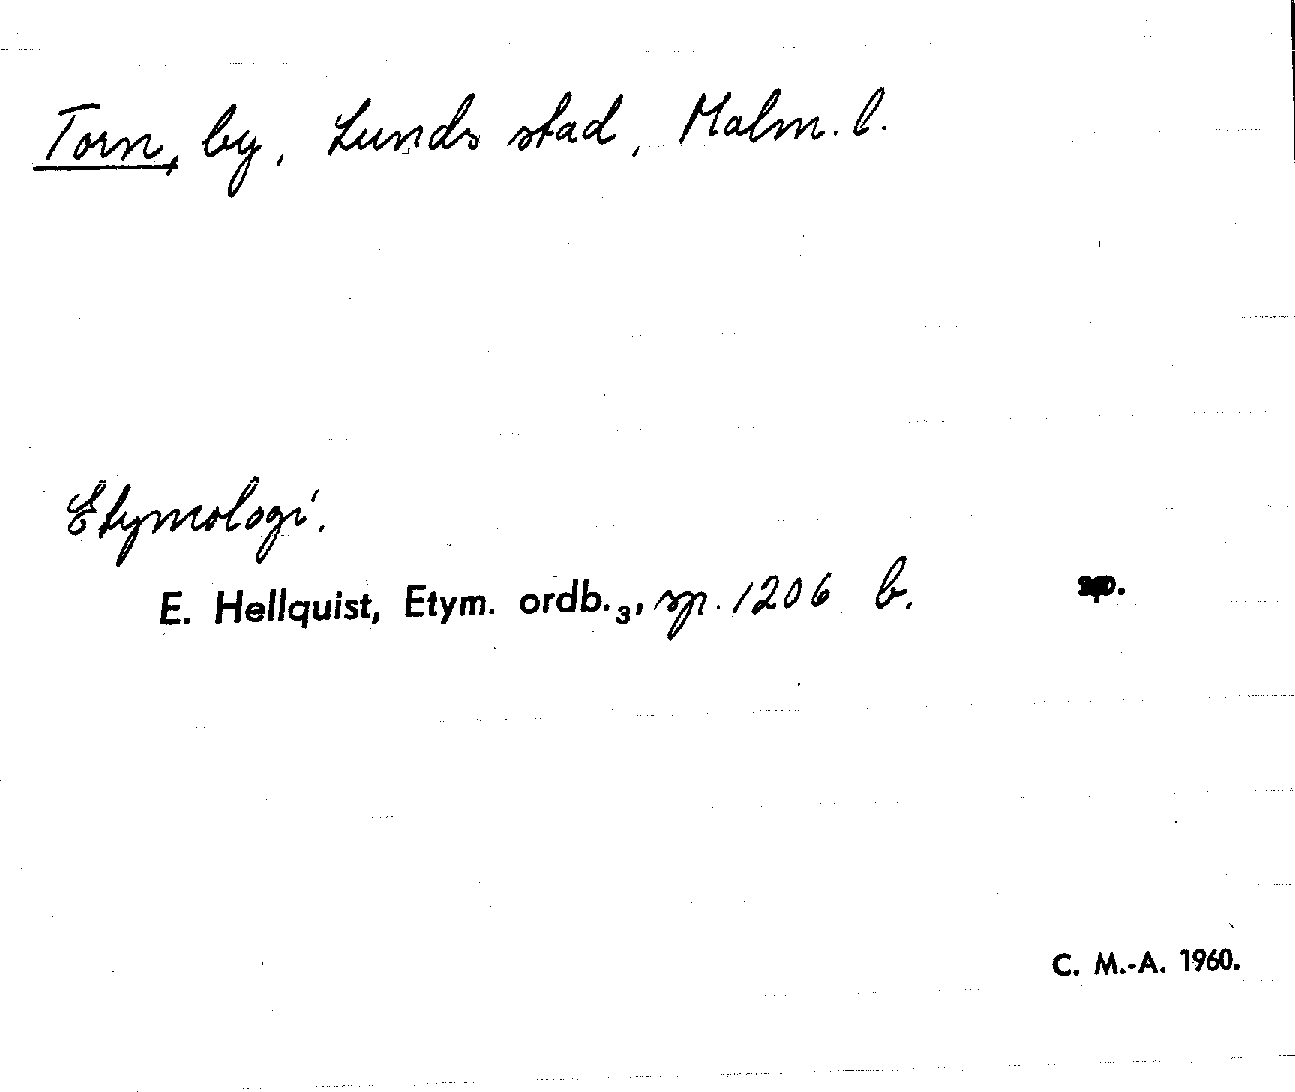 Torn, by, Lunds stad, Malm. l.
Etymologi.
E. Hellquist, Etym. ordb.₃, sp. 1206 b.
C. M.-A. 1960.